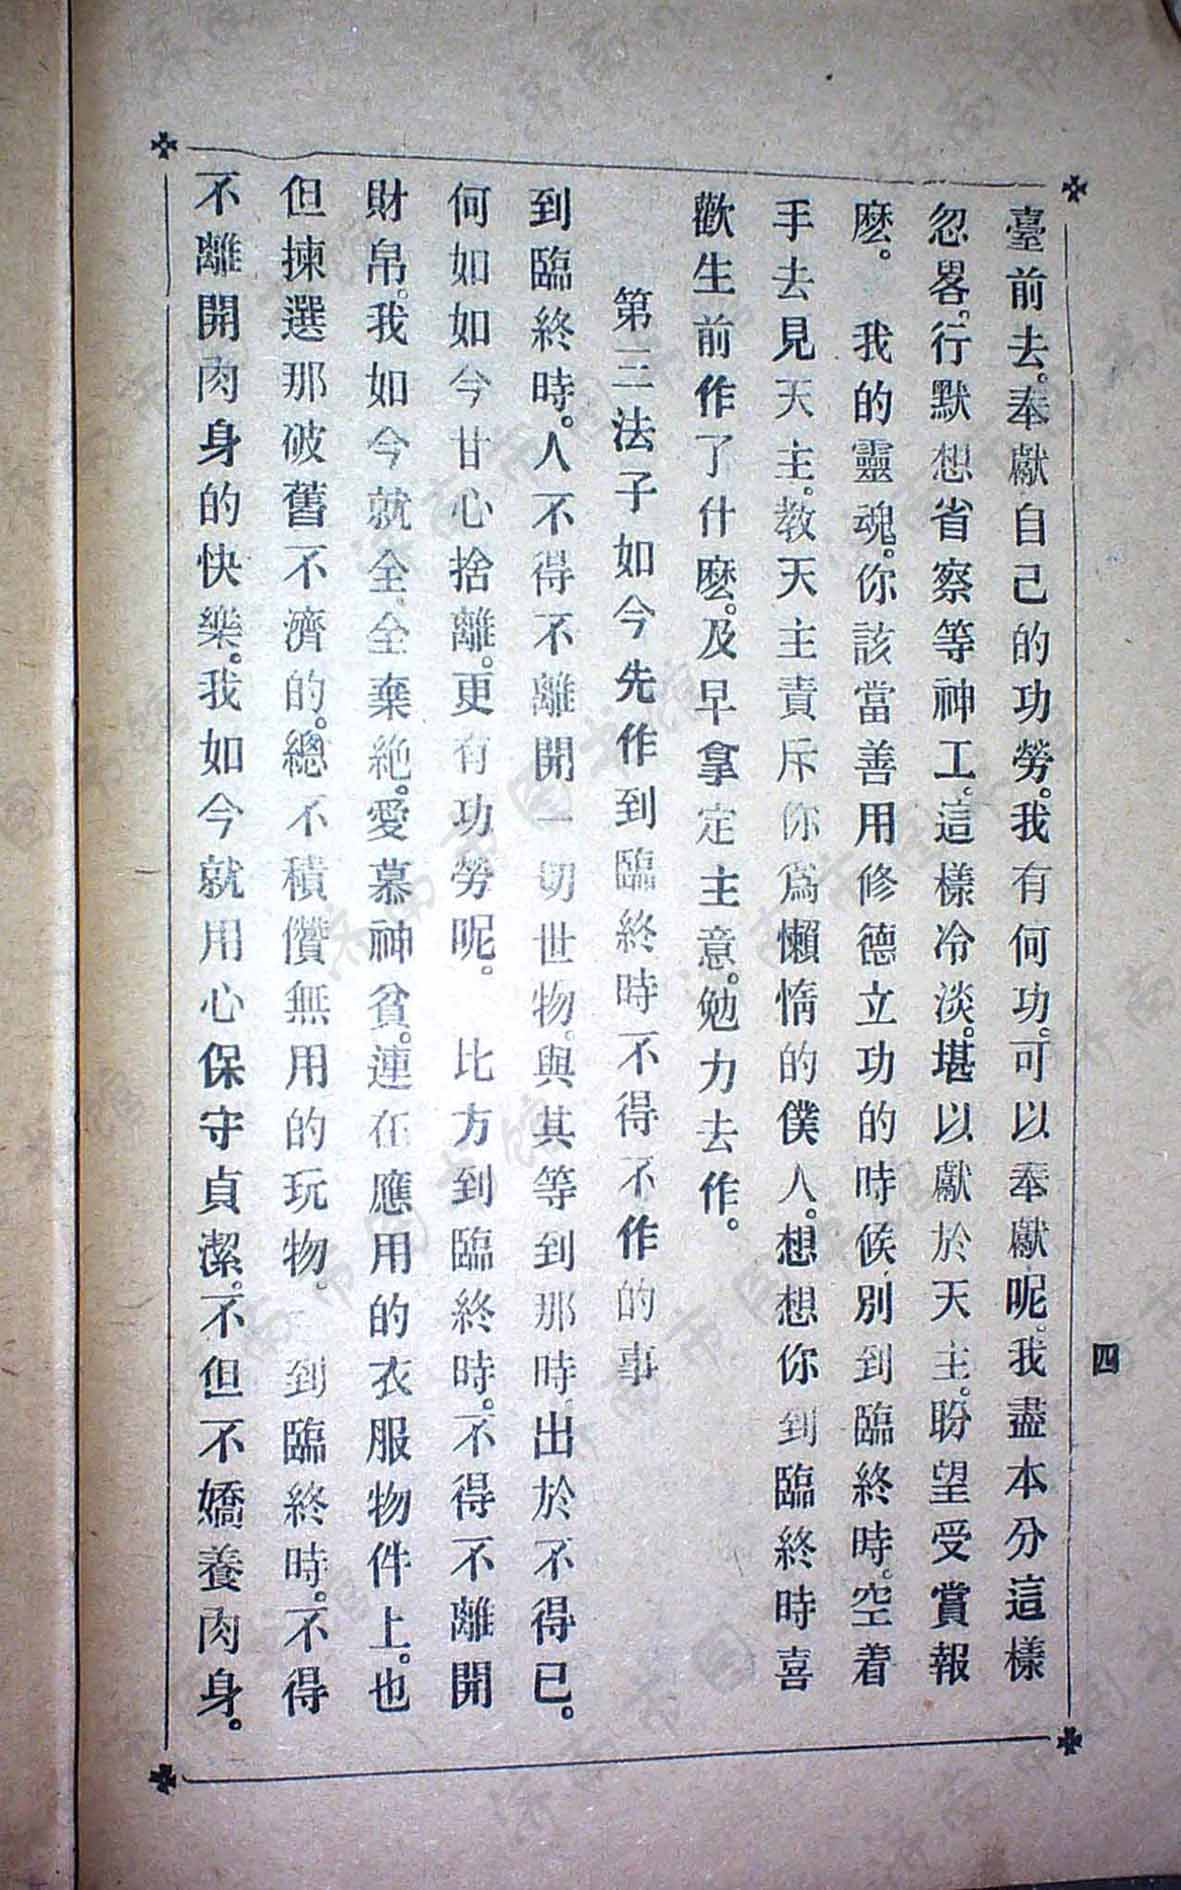 臺前去。奉獻自己的功勞。我有何功。可以奉獻呢。我盡本分這樣
忽畧。行默想省察等神工。這樣冷淡。堪以獻於天主。盼望受賞報
麽。　我的靈魂。你該當善用修德立功的時候。別到臨終時。空着
手去見天主。教天主責斥你爲懶惰的僕人。想想你到臨終時喜
歡生前作了什麽。及早拿定主意。勉力去作。
第三法子如今先作到臨終時不得不作的事
到臨終時。人不得不離開一切世物。與其等到那時。出於不得已。
何如如今甘心捨離。更有功勞呢。　比方到臨終時。不得不離開
財帛。我如今就全全棄絶。愛慕神貧。連在應用的衣服物件上。也
但揀選那破舊不濟的。總不積儹無用的玩物。　到臨終時。不得
不離開肉身的快樂。我如今就用心保守貞潔。不但不嬌養肉身。
四